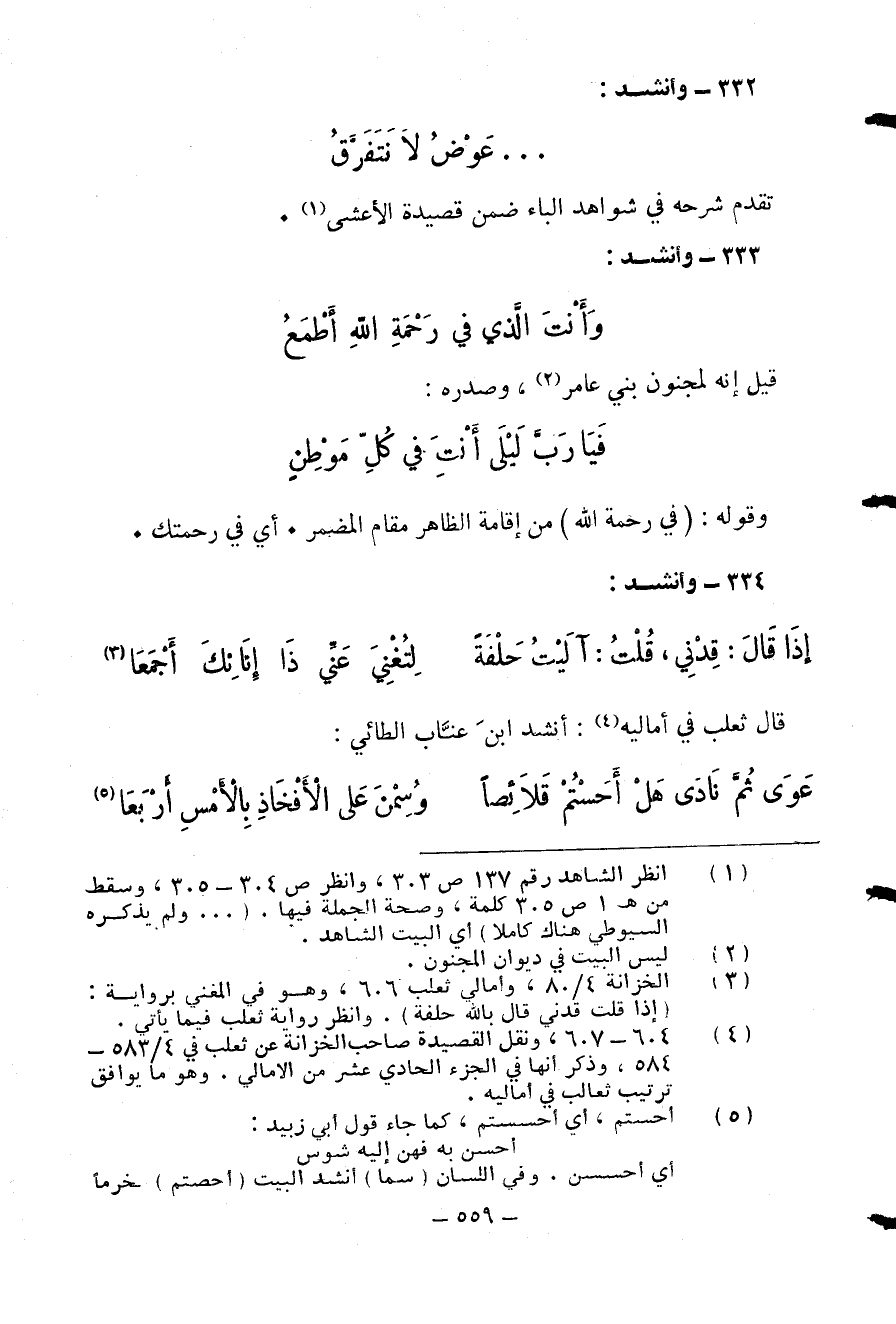 ٣٣٢ ـ وأنشـــد :
... عَوْضُ لاَ نَتَفَرَّقُ
تقدم شرحه في شواهد الباء ضمن قصيدة الأعشى(١) ٠
٣٣٣ ـ وأنشـــد :
وَأَنْتَ الَّذي في رَحْمَةِ اللهِ أَطْمَعُ
قيل إنه لمجنون بني عامر(٢) ، وصدره :
فَيَا رَبَّ لَيْلَى أَنْتَ في كُلِّ مَوْطِنٍ
وقوله : ( في رحمة الله ) من إقامة الظاهر مقام المضمر ٠ أي في رحمتك ٠
٣٣٤ ـ وأنشـــد :
إذَا قَالَ : قِدْني ، قُلْتُ : آلَيْتُ حَلْفَةً لِتُغْنِيَ عَنِّي ذَا إنَائِكَ أَجْمَعَا (٣)
قال ثعلب في أماليه(٤) : أنشد ابن َ عنَّاب الطائي :
عَوَى ثُمَّ نَادَى هَلْ أَحَسْتُمْ قَلاَئِصاً وُسِمْنَ عَلى الْأَفْخَاذِ بِالْأَمْسِ أَرْبَعَا (٥)
(١) انظر الشاهد رقم ١٣٧ ص ٣٠٣ ، وانظر ص ٣٠٤ ـ ٣٠٥ ، وسقط
من هـ ١ ص ٣٠٥ كلمة ، وصحة الجملة فيها . ( ... ولم يذكـــره
السيوطي هناك كاملا ) أي البيت الشاهد .
(٢) ليس البيت في ديوان المجنون .
(٣) الخزانة ٨٠/٤ ، وأمالي ثعلب ٦٠٦ ، وهــو في المغني بروايــة :
( إذا قلت قدني قال بالله حلفة ) . وانظر رواية ثعلب فيما يأتي .
(٤) ٦٠٤ ـ ٦٠٧ ، ونقل القصيدة صاحب الخزانة عن ثعلب في ٥٨٣/٤ ـ
٥٨٤ ، وذكر أنها في الجزء الحادي عشر من الامالي . وهو ما يوافق
ترتيب ثعالب في أماليه .
(٥) أحستم ، أي أحسستم ، كما جاء قول أبي زبيد :
أحسن به فهن إليه شوس
أي أحسسن . وفي اللسان ( سما ) أنشد البيت ( أحصتم ) خرماً
ـ ٥٥٩ ـ